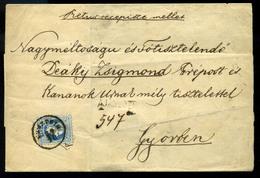 Retur recepisse mellett
Nagyméltóságu és Főtisztelendő
Deáky Zsigmond Prépost és
Kanonok Urnak mély tisztelettel
547
Győrben